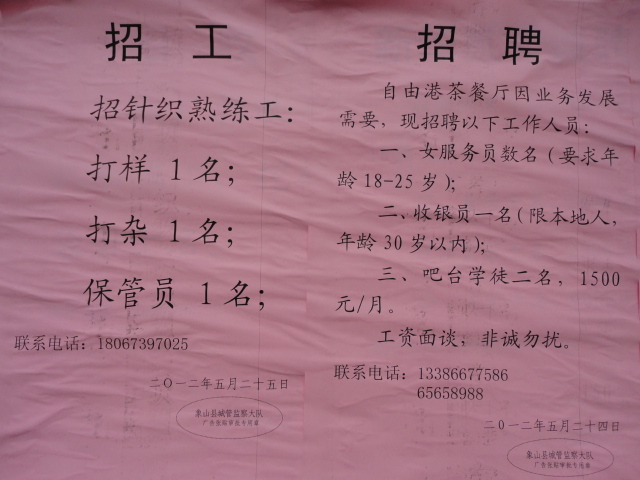 招工
招针织熟练工：
打样 1 名；
打杂 1 名；
保管员 1 名；
联系电话：18067397025
二〇一二年五月二十五日
象山县城管监察大队
广告张贴审批专用章
招聘
自由港茶餐厅因业务发展
需要，现招聘以下工作人员：
一、女服务员数名（要求年
龄 18-25 岁）；
二、收银员一名（限本地人，
年龄 30 岁以内）；
三、吧台学徒二名，1500
元/月。
工资面谈，非诚勿扰。
联系电话：13386677586
65658988
二〇一二年五月二十四日
象山县城管监察大队
广告张贴审批专用章